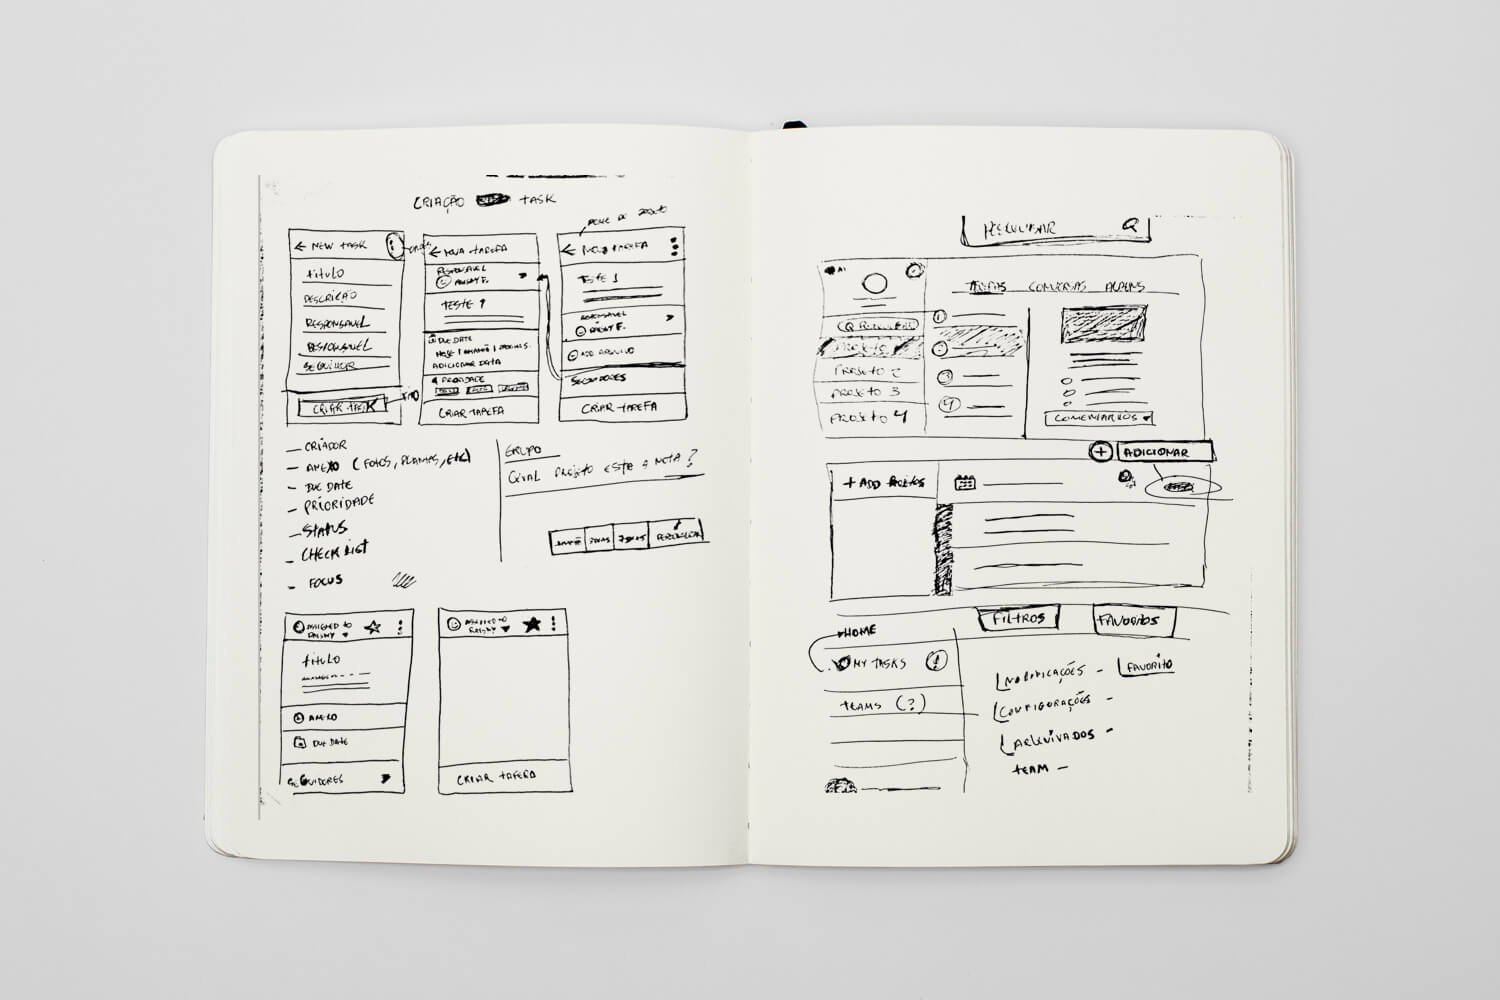 CRIAÇÃO TASK
NOME DO PROJETO
← NEW TASK
TÍTULO
DESCRIÇÃO
RESPONSAVEL
RESPONSAVEL
SEGUIDOR
CRIAR TASK
← NOVA TAREFA
RESPONSAVEL
RAISHY F.
TESTE 1
DUE DATE
ADICIONAR DATA
PRIORIDADE
CRIAR TAREFA
← NOVA TAREFA
TESTE 1
RESPONSAVEL
RAISHY F.
ADD ARQUIVO
SEGUIDORES
CRIAR TAREFA
— CRIADOR
— ANEXO (FOTOS, PLANTAS, ETC)
— DUE DATE
— PRIORIDADE
— STATUS
— CHECK LIST
— FOCUS
GRUPO
QUAL PROJETO ESTA A NOTA?
ASSIGNED TO
RAISHY
TÍTULO
ANEXO
DUE DATE
SEGUIDORES
ASSIGNED TO
RAISHY
CRIAR TAFERA
PESQUISAR
TAREFAS CONVERSAS
PROJETO
PROJETO 2
PROJETO 3
PROJETO 4
1
2
3
4
COMENTARIOS
+ ADICIONAR
+ ADD PROJETOS
FILTROS
FAVORITOS
HOME
MY TASKS
TEAMS (?)
NOTIFICAÇÕES —
FAVORITO
CONFIGURAÇÕES —
ARQUIVADOS —
TEAM —